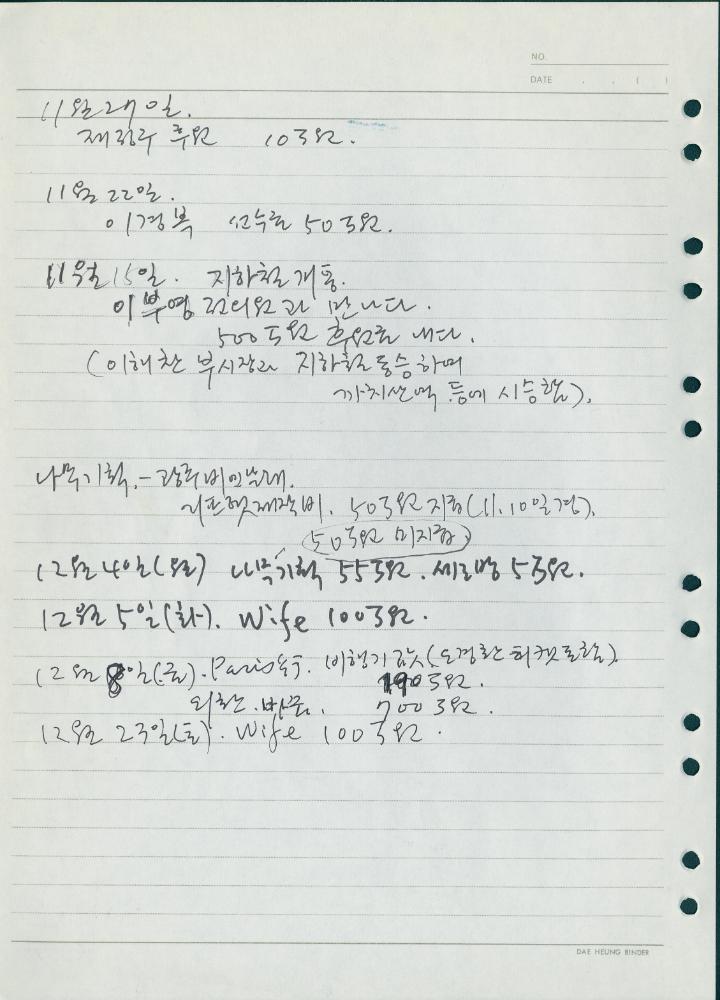 NO.
DATE . . ( )
11월 27일.
후원 10만원.
11월 22일.
이경복 50만원.
11월 15일. 지하철 개통.
이부영 전의원과 만나다.
500만원 후원금 내다.
(이해찬 부시장과 지하철 동승하며
까치산역 등에 시승함).
나무기획. -
50만원 지급(11.10일경).
50만원 미지급
12월 4일(월) 나무기획 55만원. 5만원.
12월 5일(화). Wife 100만원.
12월 8일(금). Paris 비행기값(도경환 티켓포함)
190만원.
700만원.
12월 23일(토). Wife 100만원.
DAE HEUNG BINDER